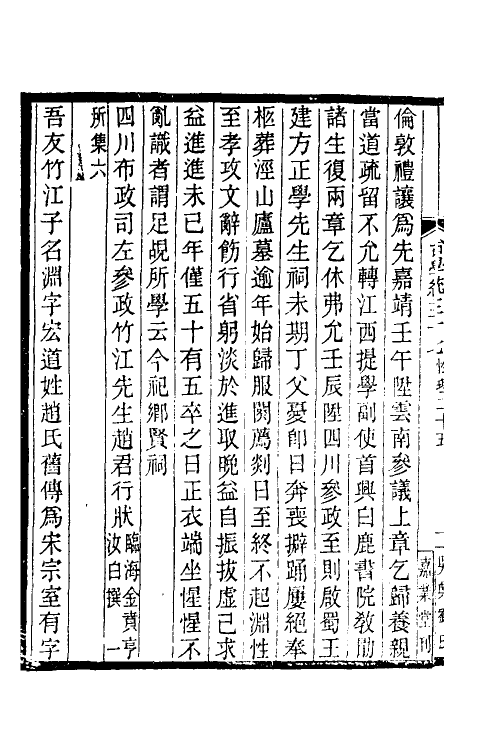 倫敦禮讓爲先嘉靖壬午陞雲南參議上章乞歸養親
當道疏留不允轉江西提學副使首興白鹿書院敎勖
諸生復兩章乞休弗允壬辰陞四川參政至則啟蜀王
建方正學先生祠未期丁父憂卽日奔喪擗踊屢絕奉
柩葬涇山廬墓逾年始歸服闋薦剡日至終不起淵性
至孝攻文辭飭行省躬淡於進取晚益自振拔虛己求
益進進未已年僅五十有五卒之日正衣端坐惺惺不
亂識者謂足覘所學云今祀鄉賢祠
四川布政司左參政竹江先生趙君行狀臨海金賁亨汝白撰 一
所集六
吾友竹江子名淵字宏道姓趙氏舊傳爲宋宗室有字
嘉業堂刊